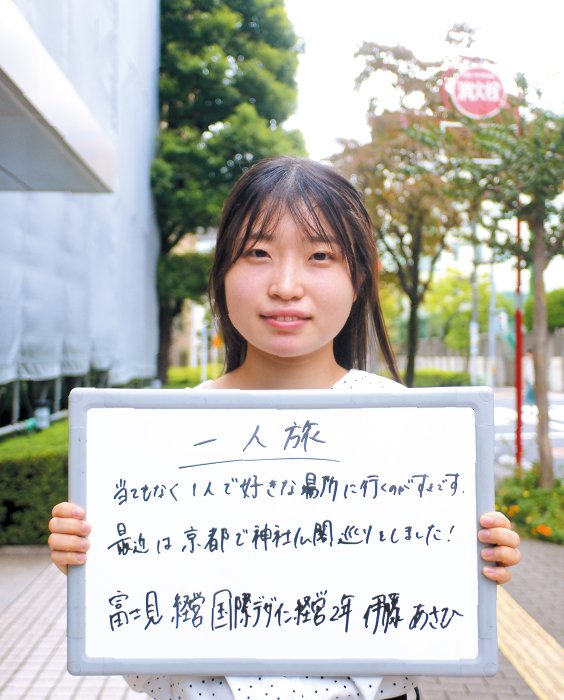 消火栓
一人旅
当てもなく1人で好きな場所に行くのがすきです.
最近は京都で神社仏閣巡りをしました!
富士見 経営 国際デザイン経営2年 伊藤 あさひ